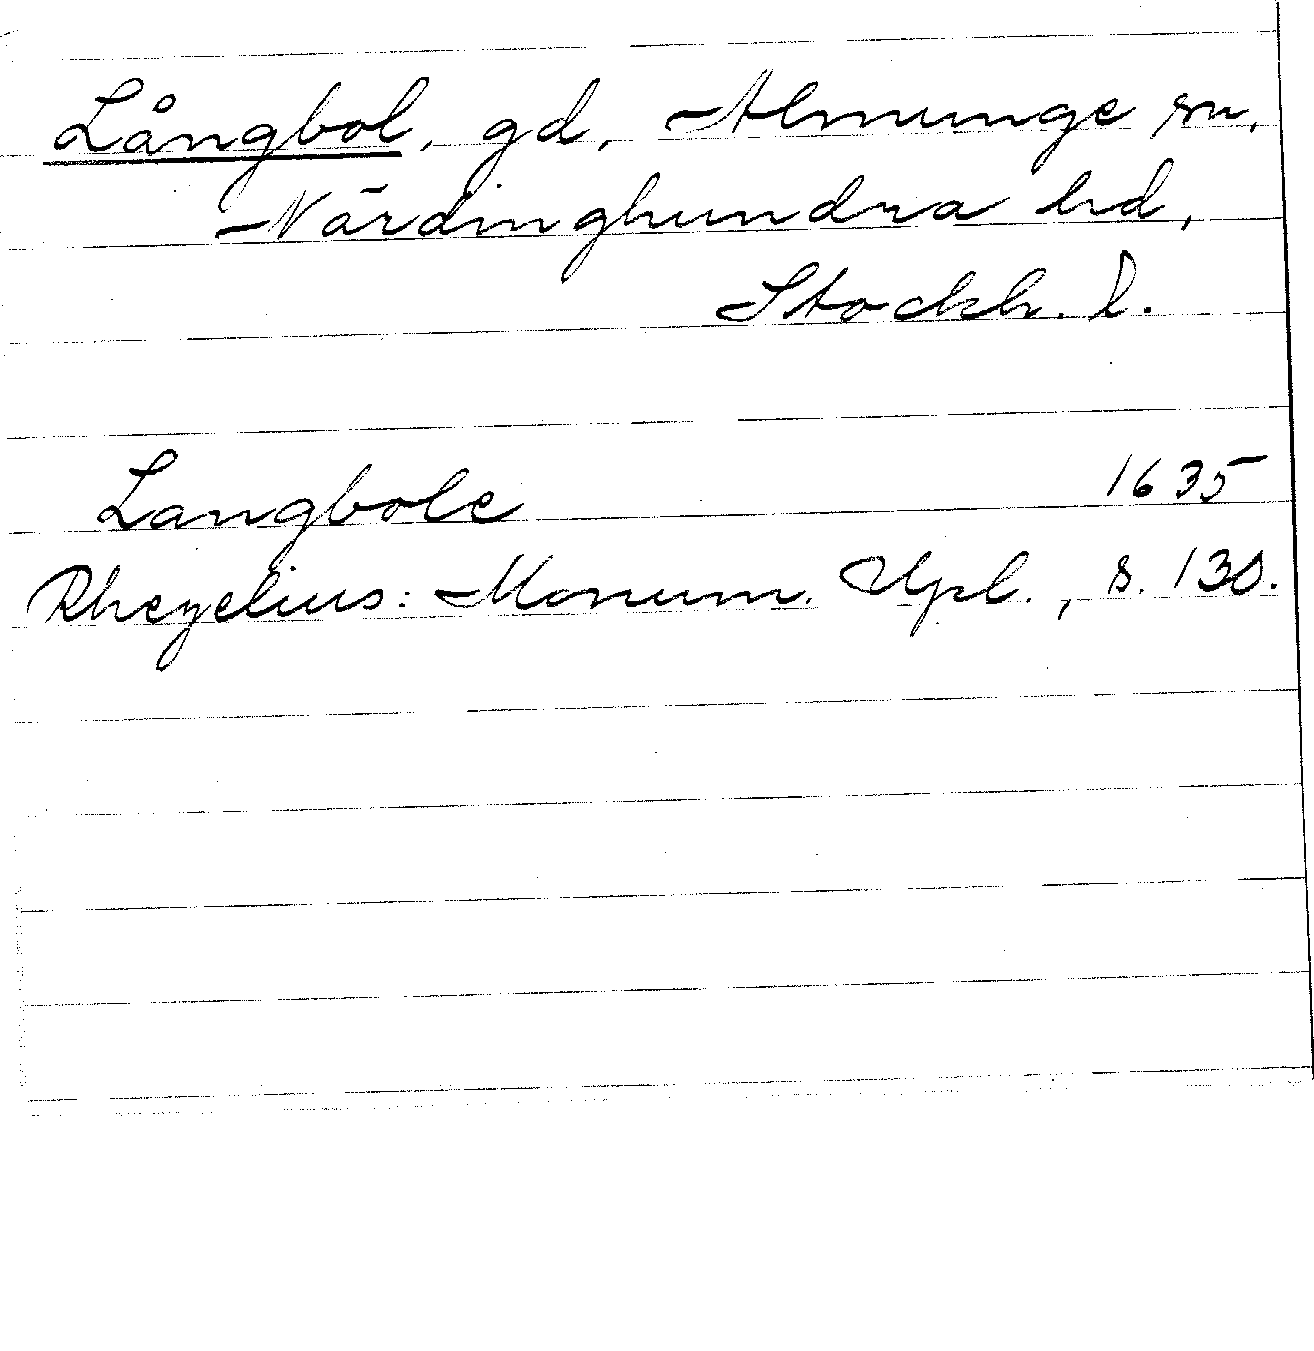 Långbol, gd, Almunge sn,
Närdinghundra hd,
Stockh. l.
Langbole 1635
Rhezelius: Monum. Upl., s. 130.